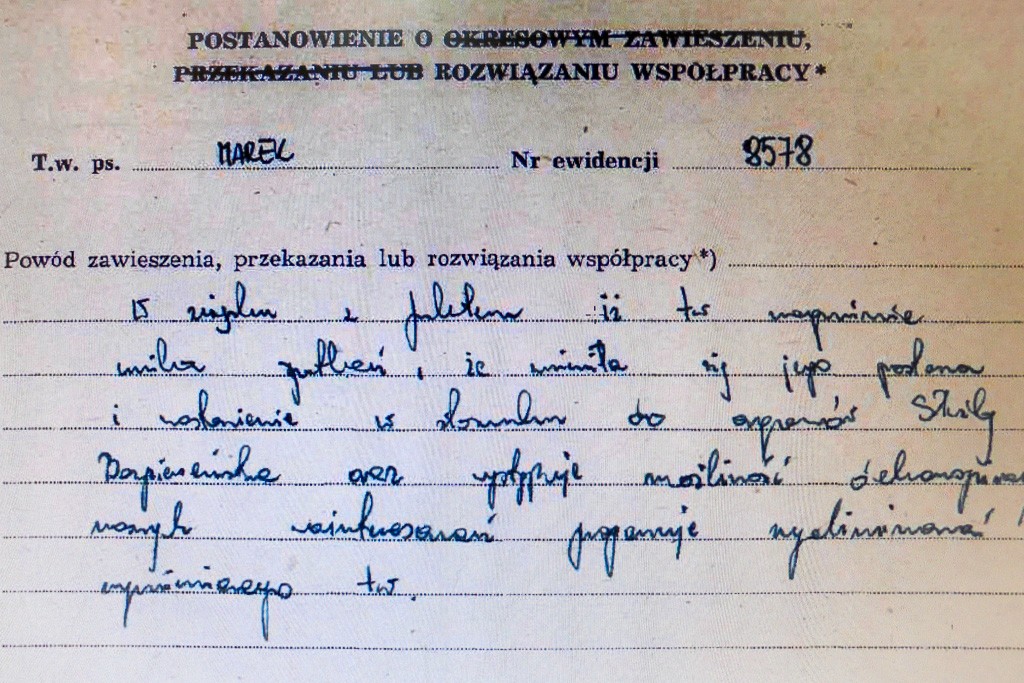 POSTANOWIENIE O OKRESOWYM ZAWIESZENIU,
PRZEKAZANIU LUB ROZWIĄZANIU WSPÓŁPRACY*
T.w. ps. MAREK Nr ewidencji 8578
Powód zawieszenia, przekazania lub rozwiązania współpracy*)
W związku z faktem iż tw
unika spotkań, że zmieniła się jego postawa
i nastawienie w stosunku do organów Służby
Bezpieczeństwa oraz występuje możliwość
naszych zainteresowań proponuję wyeliminować
wymienionego tw.